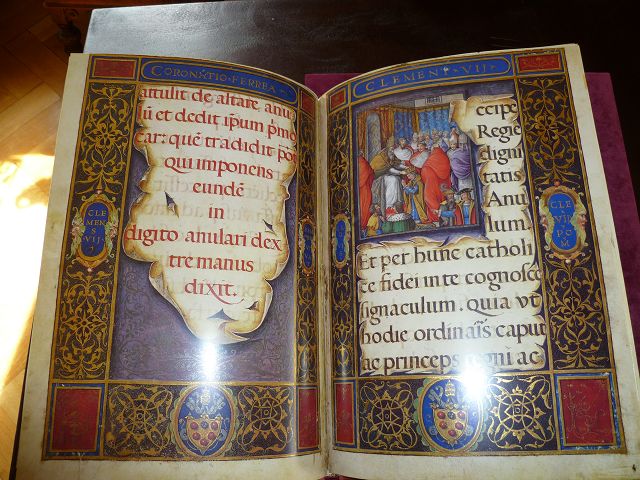 CORONATIO·FERREA
attulit de altare, anu
lū et dedit ip̄um p̄me
car: quē tradidit pōt
qui imponens
eundē
in
digito anulari dex
tre manus
dixit.
CLE
MEN
S
VII
CLEMENS·VII
ccipe
Regię
digni
tatis
Anu
lum.
Et per hunc catholi
ce fidei in te cognosce
signaculum. quia vt
hodie ordinaīs caput
ac princeps regni ac
CLE
VII
P
O M